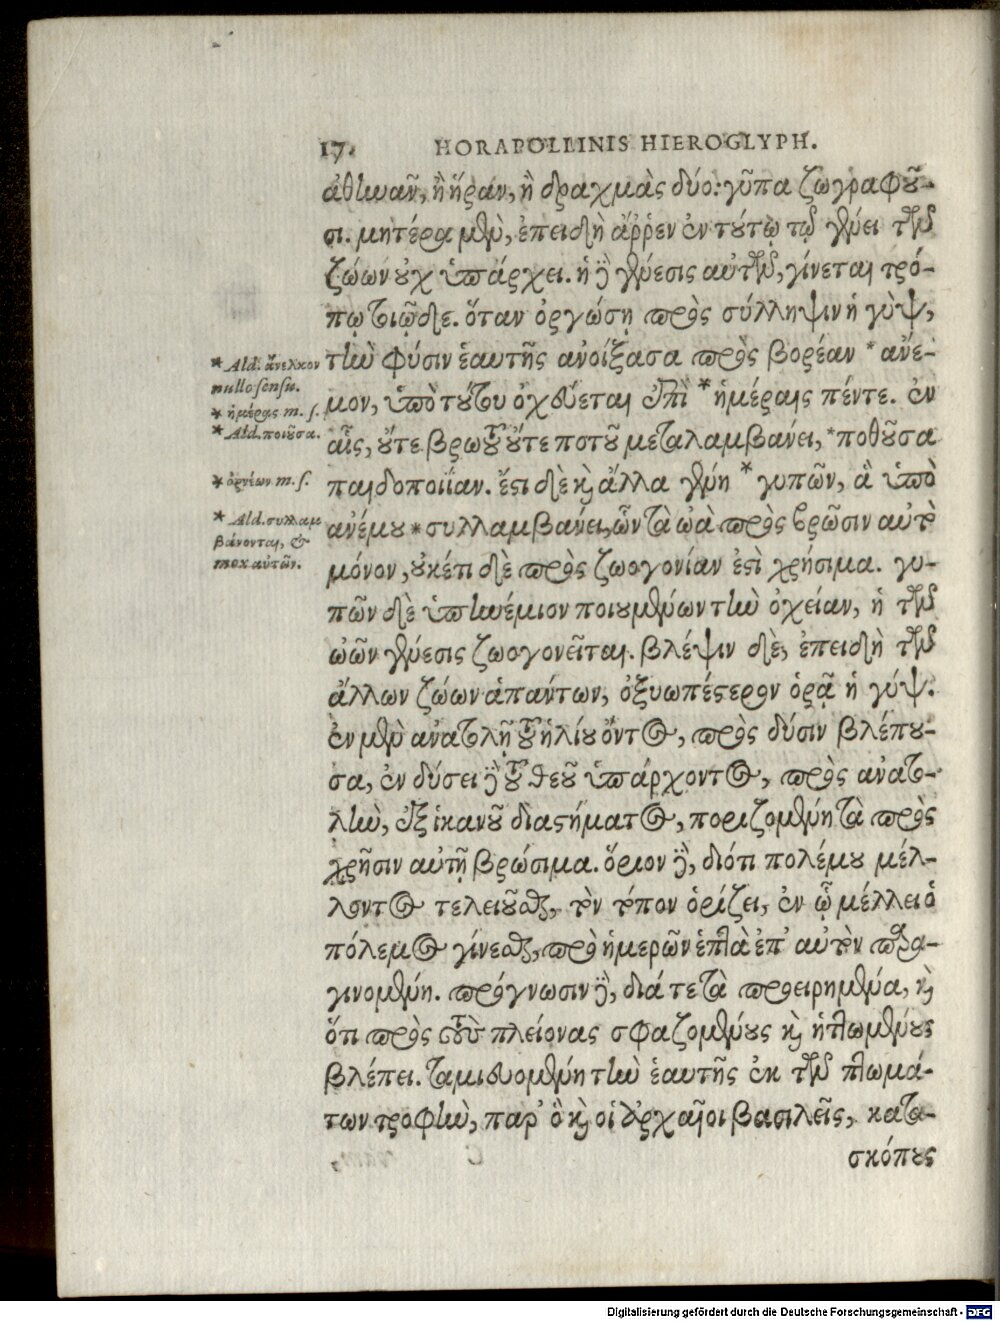 17. HORAPOLLINIS HIEROGLYPH.
ἀθηνᾶν, ἢ ἥραν, ἢ δραχμὰς δύο: γῦπα ζωγραφοῦ-
σι. μητέρα μὲν, ἐπειδὴ ἄῤῥεν ἐν τούτῳ τῷ γένει τῶν
ζώων οὐχ ὑπάρχει. ἡ δὲ γένεσις αὐτῶν, γίνεται τρό-
πῳ τοιῷδε. ὅταν ὀργώσῃ πρὸς σύλληψιν ἡ γὺψ,
τὴν φύσιν ἑαυτῆς ἀνοίξασα πρὸς βορέαν * ἄνε-
μον, ὑπὸ τούτου ὀχεύεται ἐπὶ * ἡμέραις πέντε. ἐν
αἷς, οὔτε βρωτοῦ οὔτε ποτοῦ μεταλαμβάνει, * ποθοῦσα
παιδοποιΐαν. ἔστι δὲ καὶ ἄλλα γένη * γυπῶν, ἃ ὑπὸ
ἀνέμου * συλλαμβάνει, ὧν τὰ ὠὰ πρὸς βρῶσιν αὐτὸ
μόνον, οὐκέτι δὲ πρὸς ζωογονίαν ἐστὶ χρήσιμα. γυ-
πῶν δὲ ὑπηνέμιον ποιουμένων τὴν ὀχείαν, ἡ τῶν
ὠῶν γένεσις ζωογονεῖται. βλέψιν δὲ, ἐπειδὴ τῶν
ἄλλων ζώων ἁπάντων, ὀξυωπέστερον ὁρᾷ ἡ γύψ.
ἐν μὲν ἀνατολῇ τοῦ ἡλίου ὄντος, πρὸς δύσιν βλέπου-
σα, ἐν δύσει δὲ τοῦ θεοῦ ὑπάρχοντος, πρὸς ἀνατο-
λὴν, ἐξ ἱκανοῦ διαστήματος, ποριζομένη τὰ πρὸς
χρῆσιν αὐτῇ βρώσιμα. ὅριον δὲ, διότι πολέμου μέλ-
λοντος τελειοῦσθαι, τὸν τόπον ὁρίζει, ἐν ᾧ μέλλει ὁ
πόλεμος γίνεσθαι, πρὸ ἡμερῶν ἑπτὰ ἐπ' αὐτὸν παρα-
γινομένη. πρόγνωσιν δὲ, διά τε τὰ προειρημένα, καὶ
ὅτι πρὸς τοὺς πλείονας σφαζομένους καὶ ἡττωμένους
βλέπει. ταμιευομένη τὴν ἑαυτῆς ἐκ τῶν πτωμά-
των τροφὴν, παρ' ὃ καὶ οἱ ἀρχαῖοι βασιλεῖς, κατα-
σκόπους
* Ald. ἄνελκον
nullo sensu.
* ἡμέρας m. s.
* Ald. ποιοῦσα.
* ὀρνέων m. s.
* Ald. συλλαμ
βάνονται, &
mox αὐτῶν.
Digitalisierung gefördert durch die Deutsche Forschungsgemeinschaft - DFG